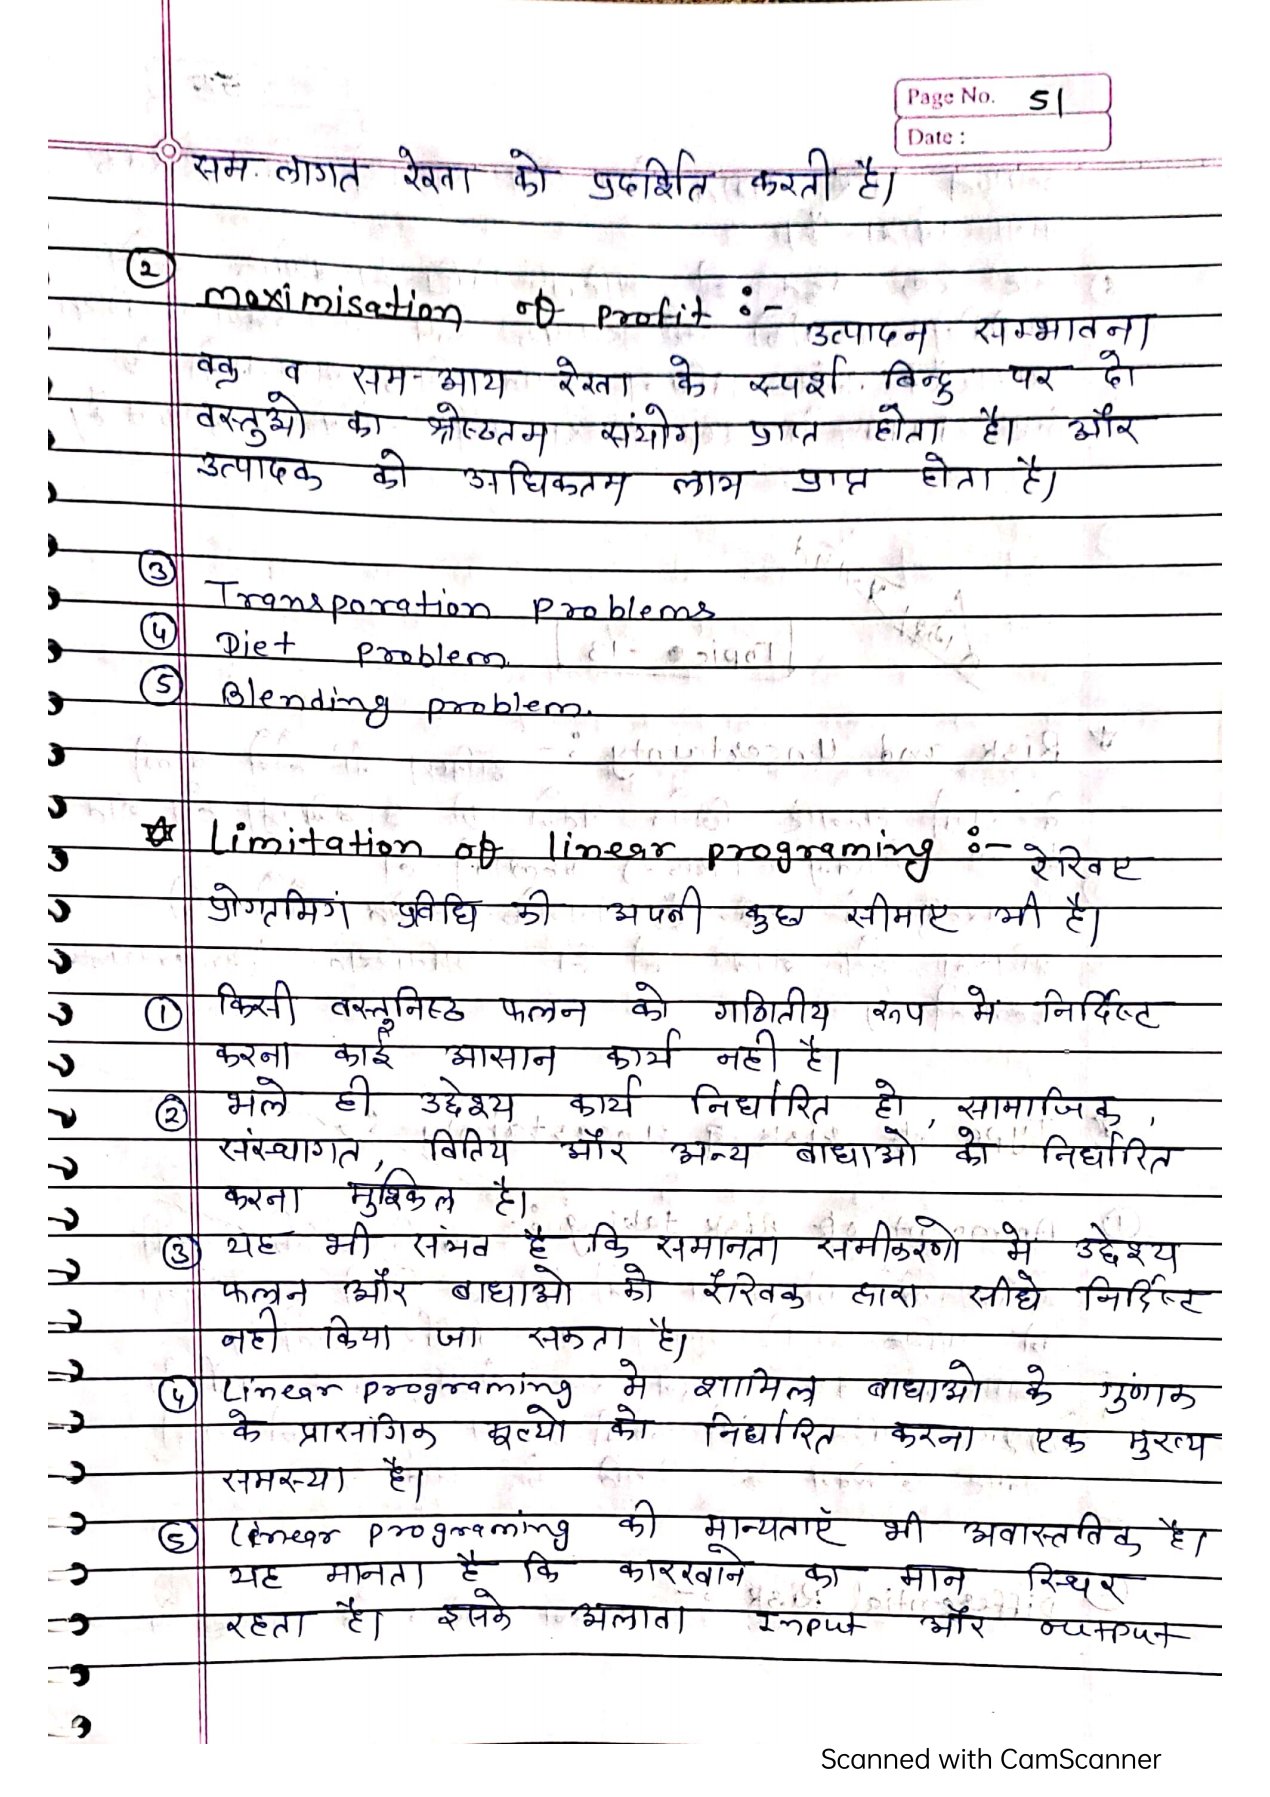 Page No. 51
Date :
सम-लागत रेखा को प्रदर्शित करती है।
② maximisation of profit :- उत्पादन सम्भावना
वक्र व सम-आय रेखा के स्पर्श बिन्दु पर दो
वस्तुओ का श्रेष्ठतम संयोग प्राप्त होता है। और
उत्पादक को अधिकतम लाभ प्राप्त होता है।
③ Transporation problems
④ Diet problem.
⑤ Blending problem.
☆ Limitation of linear programing :- रेखिए
प्रोगतमिगं प्रविधि की अपनी कुछ सीमाए भी है।
① किसी वस्तुनिष्ठ फलन को गणितीय रूप मे निर्दिष्ट
करना काई आसान कार्य नही है।
② भले ही उद्देश्य कार्य निर्धारित हो, सामाजिक,
संस्थागत, वितिय और अन्य बाधाओ को निर्धारित
करना मुश्किल है।
③ यह भी संभव है कि समानता समीकरणो मे उद्देश्य
फलन और बाधाओ को रैखिक द्वारा सीधे निर्दिष्ट
नही किया जा सकता है।
④ Linear programing मे शामिल बाधाओ के गुणंक
के प्रासंगिक मूल्यो को निर्धारित करना एक मुख्य
समस्या है।
⑤ Linear programing की मान्यताएँ भी अवास्तविक है।
यह मानता है कि कारखाने का मान स्थिर
रहता है। इसके अलावा Input और output
Scanned with CamScanner